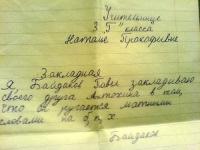 Учительнице
3 "Г" класса
Наташе Прокофьевне
Закладная
Я, Байдаков Павел закладываю
своего друга Антохина в том,
что он ругается матными
словами на б, п, х
Байдаков